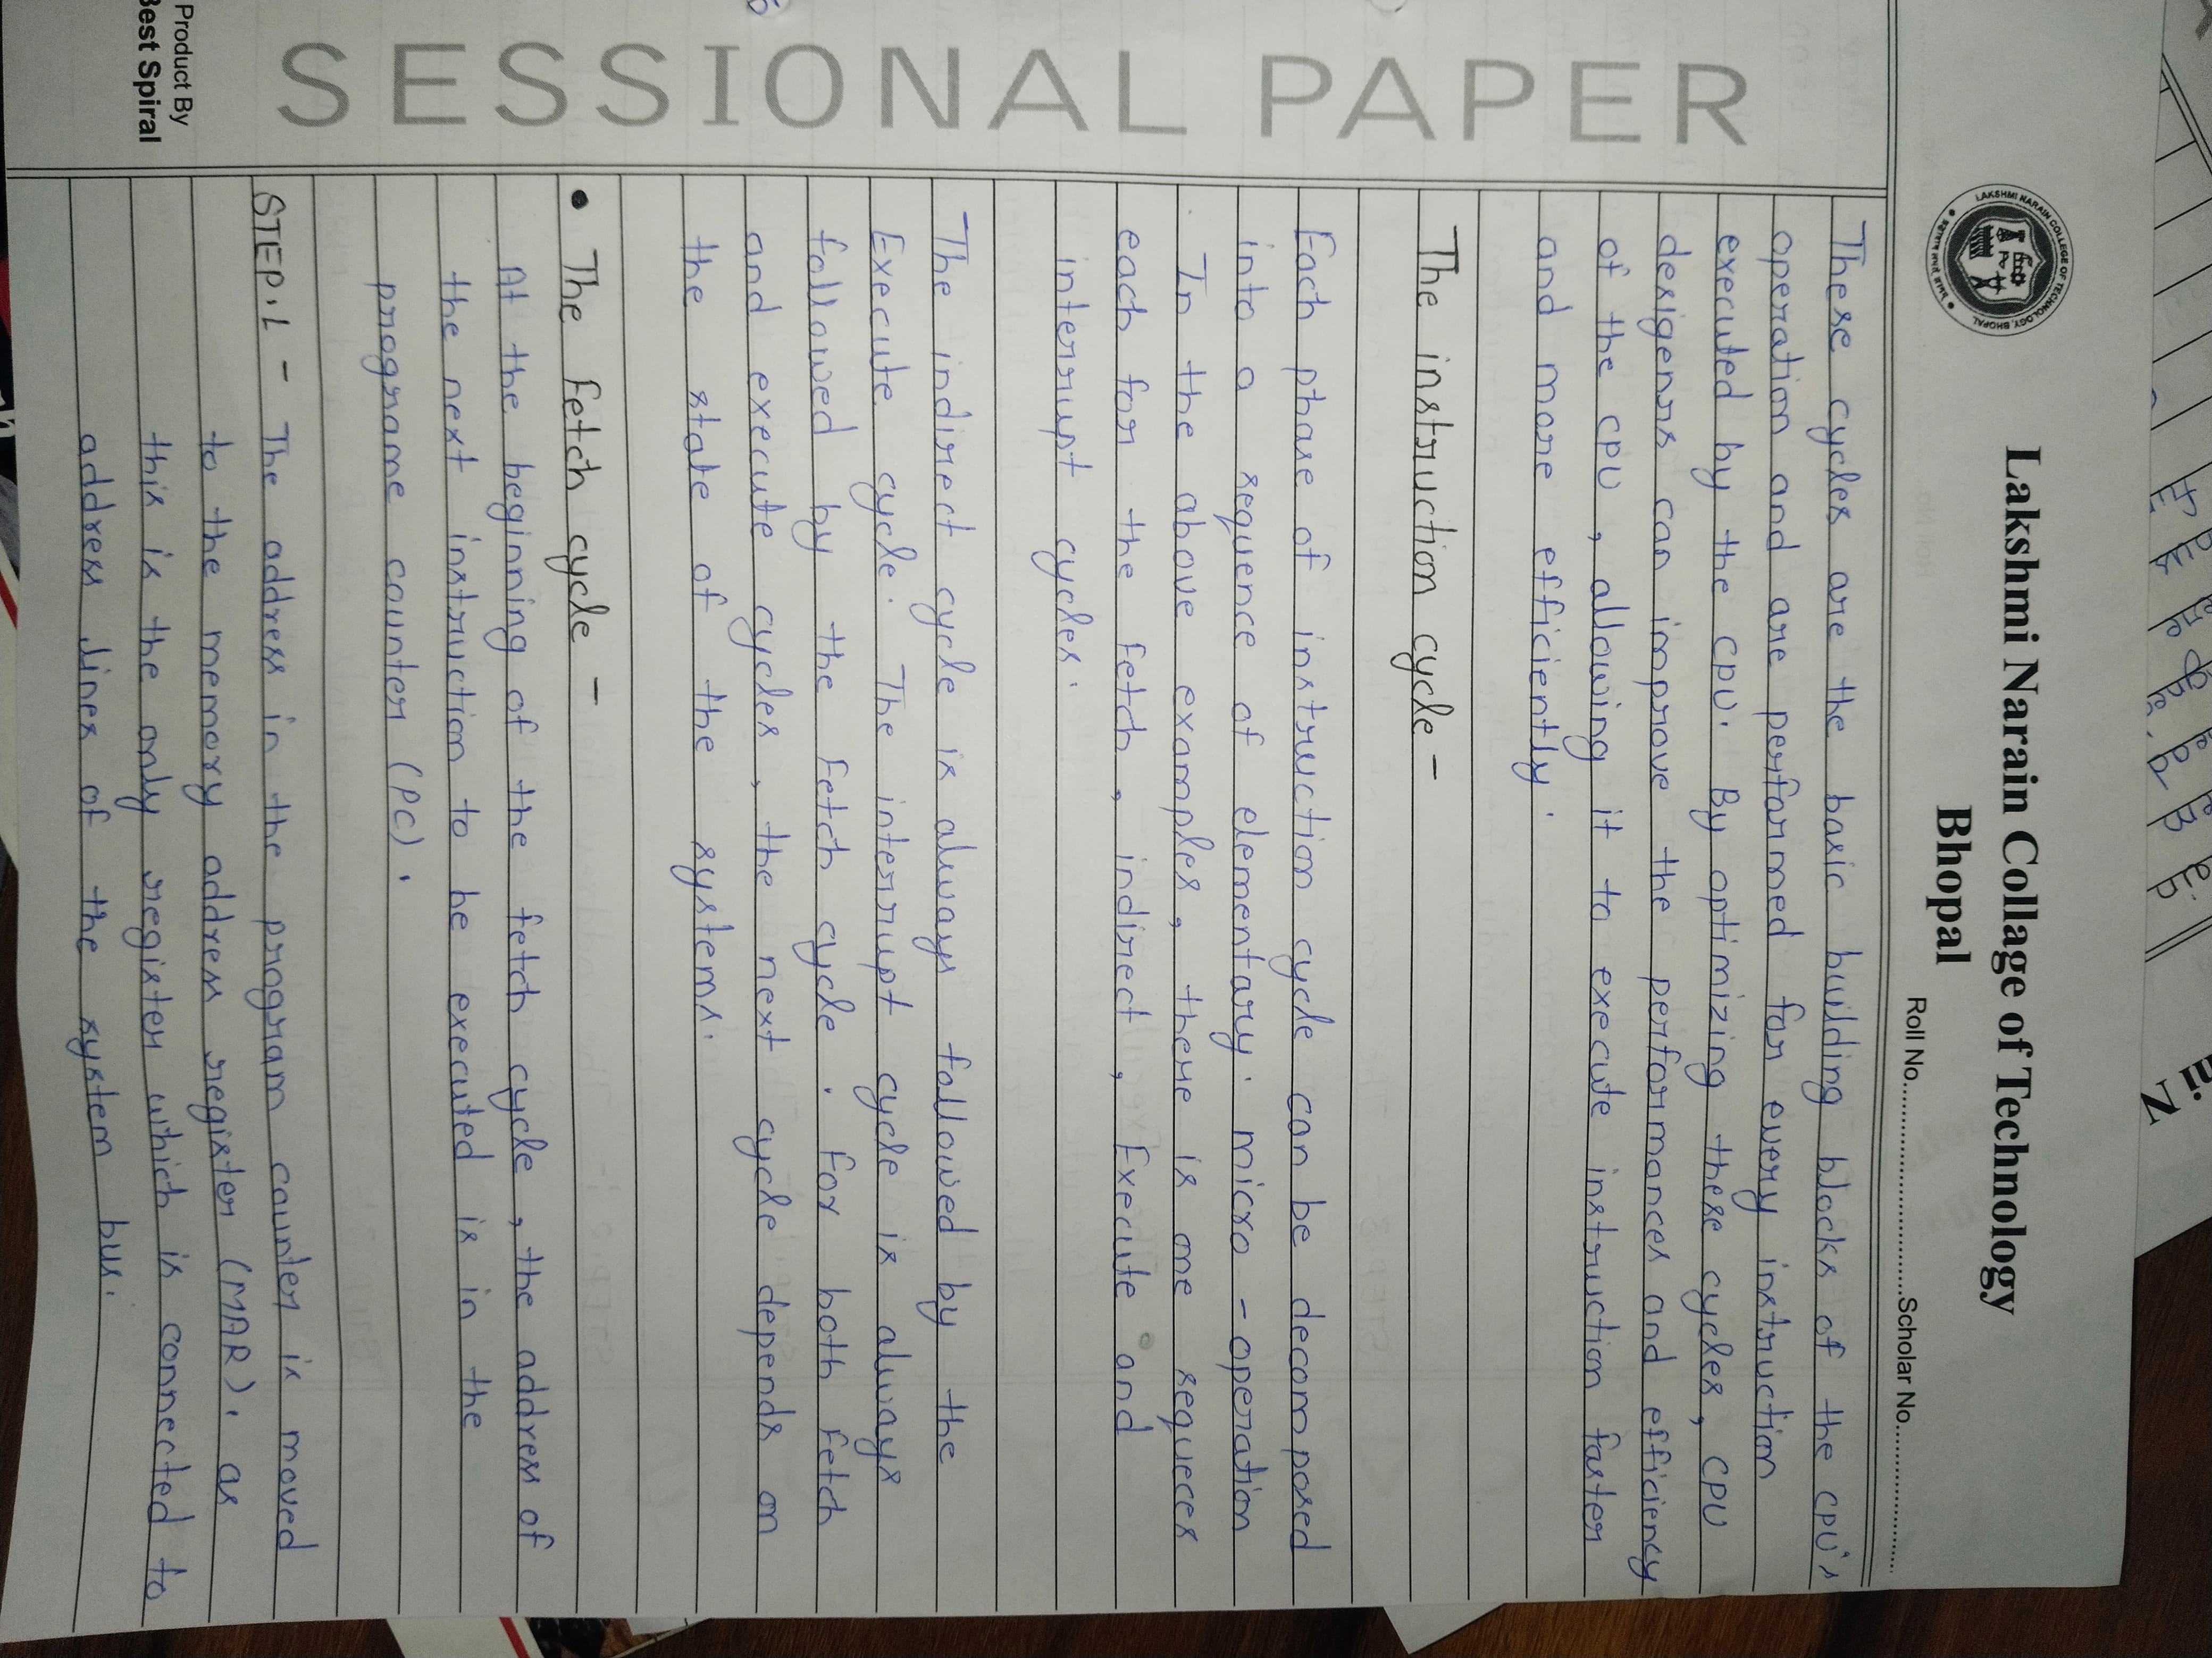 fu
ous
ere
gnes
ead
em
ain
ni N
LAKSHMI NARAIN COLLEGE OF TECHNOLOGY, BHOPAL
Lakshmi Narain Collage of Technology
Bhopal
Roll No..............................Scholar No.....................
SESSIONAL PAPER
These cycles are the basic building blocks of the CPU's
operation and are performed for every instruction
executed by the CPU. By optimizing these cycles, CPU
desigenrs can improve the performances and efficiency
of the CPU , allowing it to execute instruction faster
and more efficiently.
The instruction cycle -
Each phase of instruction cycle can be decomposed
into a sequence of elementary. micro - operation
In the above examples, there is one sequeces
each for the Fetch, indirect, Execute and
interrupt cycles.
The indirect cycle is always followed by the
Execute cycle. The interrupt cycle is always
followed by the Fetch cycle. For both Fetch
and execute cycles, the next cycle depends on
the state of the systems.
• The Fetch cycle -
At the beginning of the fetch cycle, the address of
the next instruction to be executed is in the
programe counter (PC).
STEP.1 - The address in the program counter is moved
to the memory address register (MAR). as
this is the only register which is connected to
address lines of the system bus.
Product By
Best Spiral